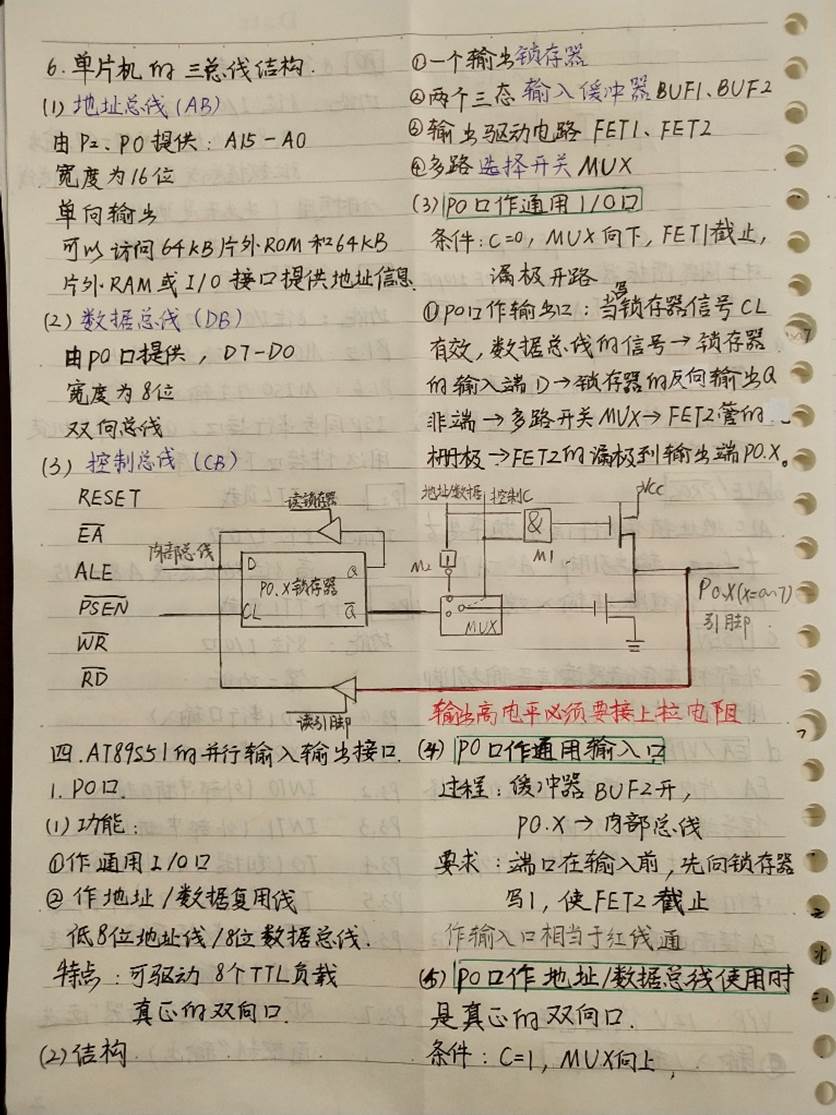 6.单片机的三总线结构.
(1) 地址总线(AB)
由P2、P0提供：A15-A0
宽度为16位
单向输出
可以访问64KB片外ROM和64KB
片外RAM或I/O接口提供地址信息.
(2) 数据总线(DB)
由P0口提供，D7-D0
宽度为8位
双向总线
(3) 控制总线(CB)
RESET
E̅A̅
ALE
P̅S̅E̅N̅
W̅R̅
R̅D̅
读锁存器
内部总线
D
Q
P0.X锁存器
CL
Q̅
读引脚
地址/数据
控制C
VCC
&
M1
M2
1
MUX
P0.X(X=0~7)
引脚
输出高电平必须要接上拉电阻
四.AT89S51的并行输入输出接口.
1.P0口.
(1)功能：
①作通用I/O口
②作地址/数据复用线
低8位地址线/8位数据总线.
特点：可驱动8个TTL负载
真正的双向口.
(2)结构
①一个输出锁存器
②两个三态输入缓冲器BUF1、BUF2
③输出驱动电路FET1、FET2
④多路选择开关MUX
(3) P0口作通用I/O口
条件：C=0，MUX向下，FET1截止，
漏极开路
①P0口作输出口：当写锁存器信号CL
有效，数据总线的信号→锁存器
的输入端D→锁存器的反向输出Q
非端→多路开关MUX→FET2管的
栅极→FET2的漏极到输出端P0.X。
(4) P0口作通用输入口
过程：缓冲器BUF2开，
P0.X→内部总线
要求：端口在输入前，先向锁存器
写1，使FET2截止
作输入口相当于红线通
(5) P0口作地址/数据总线使用时
是真正的双向口.
条件：C=1，MUX向上，